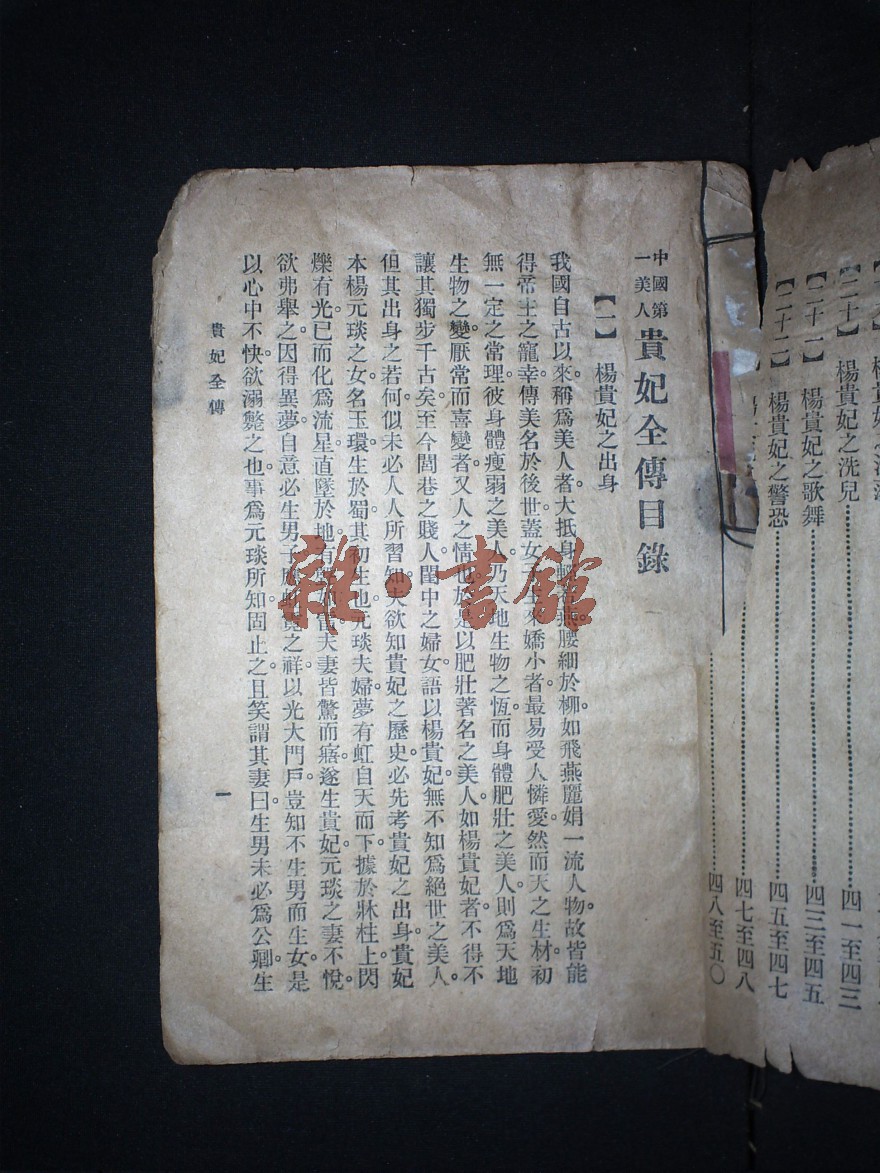 【二十】 楊貴妃之洗兒 四一至四三
【二十一】 楊貴妃之歌舞 四三至四五
【二十二】 楊貴妃之警恐 四五至四七
四七至四八
四八至五〇
中國第一美人 貴妃全傳目錄
【一】 楊貴妃之出身
我國自古以來。稱爲美人者。大抵身 腰細於柳。如飛燕麗娟一流人物。故皆能
得帝王之寵幸。傳美名於後世。蓋女子 來嬌小者。最易受人憐愛。然而天之生材。初
無一定之常理。彼身體瘦弱之美人。乃天地生物之恆。而身體肥壯之美人。則爲天地
生物之變。厭常而喜變者。又人之情也。於是以肥壯著名之美人。如楊貴妃者。不得不
讓其獨步千古矣。至今閭巷之賤人。閨中之婦女。語以楊貴妃。無不知爲絕世之美人。
但其出身之若何。似未必人人所習知。夫欲知貴妃之歷史。必先考貴妃之出身。貴妃
本楊元琰之女。名玉環。生於蜀。其初生也。元琰夫婦夢有虹自天而下。據於牀柱上。閃
爍有光。已而化爲流星。直墜於地。有 夫妻皆驚而寤。遂生貴妃。元琰之妻不悅。
欲弗舉之。因得異夢。自意必生男子。 之祥。以光大門戶。豈知不生男而生女。是
以心中不快。欲溺斃之也。事爲元琰所知。固止之。且笑謂其妻曰。生男未必爲公卿。生
貴妃全傳
一
雜·書館